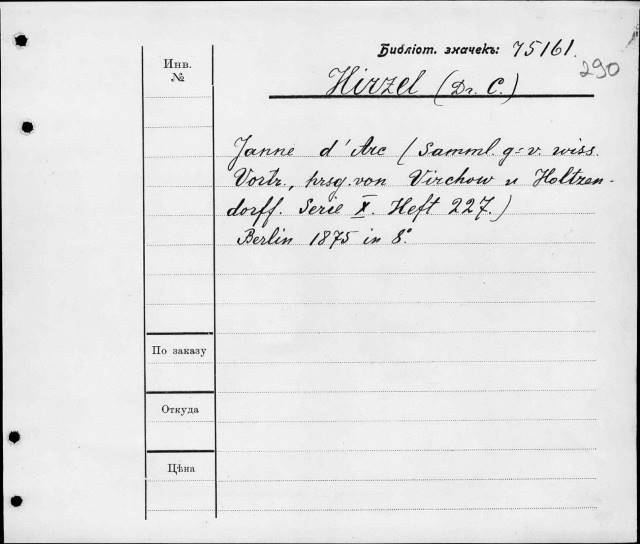 Библіот. значекъ: 75161.
290
Инв.
№
Hirzel (Dr. C.)
Janne d'Arc (Samml. g=v. wiss.
Vortr., hrsg. von Virchow u Holtzen-
dorff. Serie X. Heft 227.)
Berlin 1875 in 8°
По заказу
Откуда
Цѣна